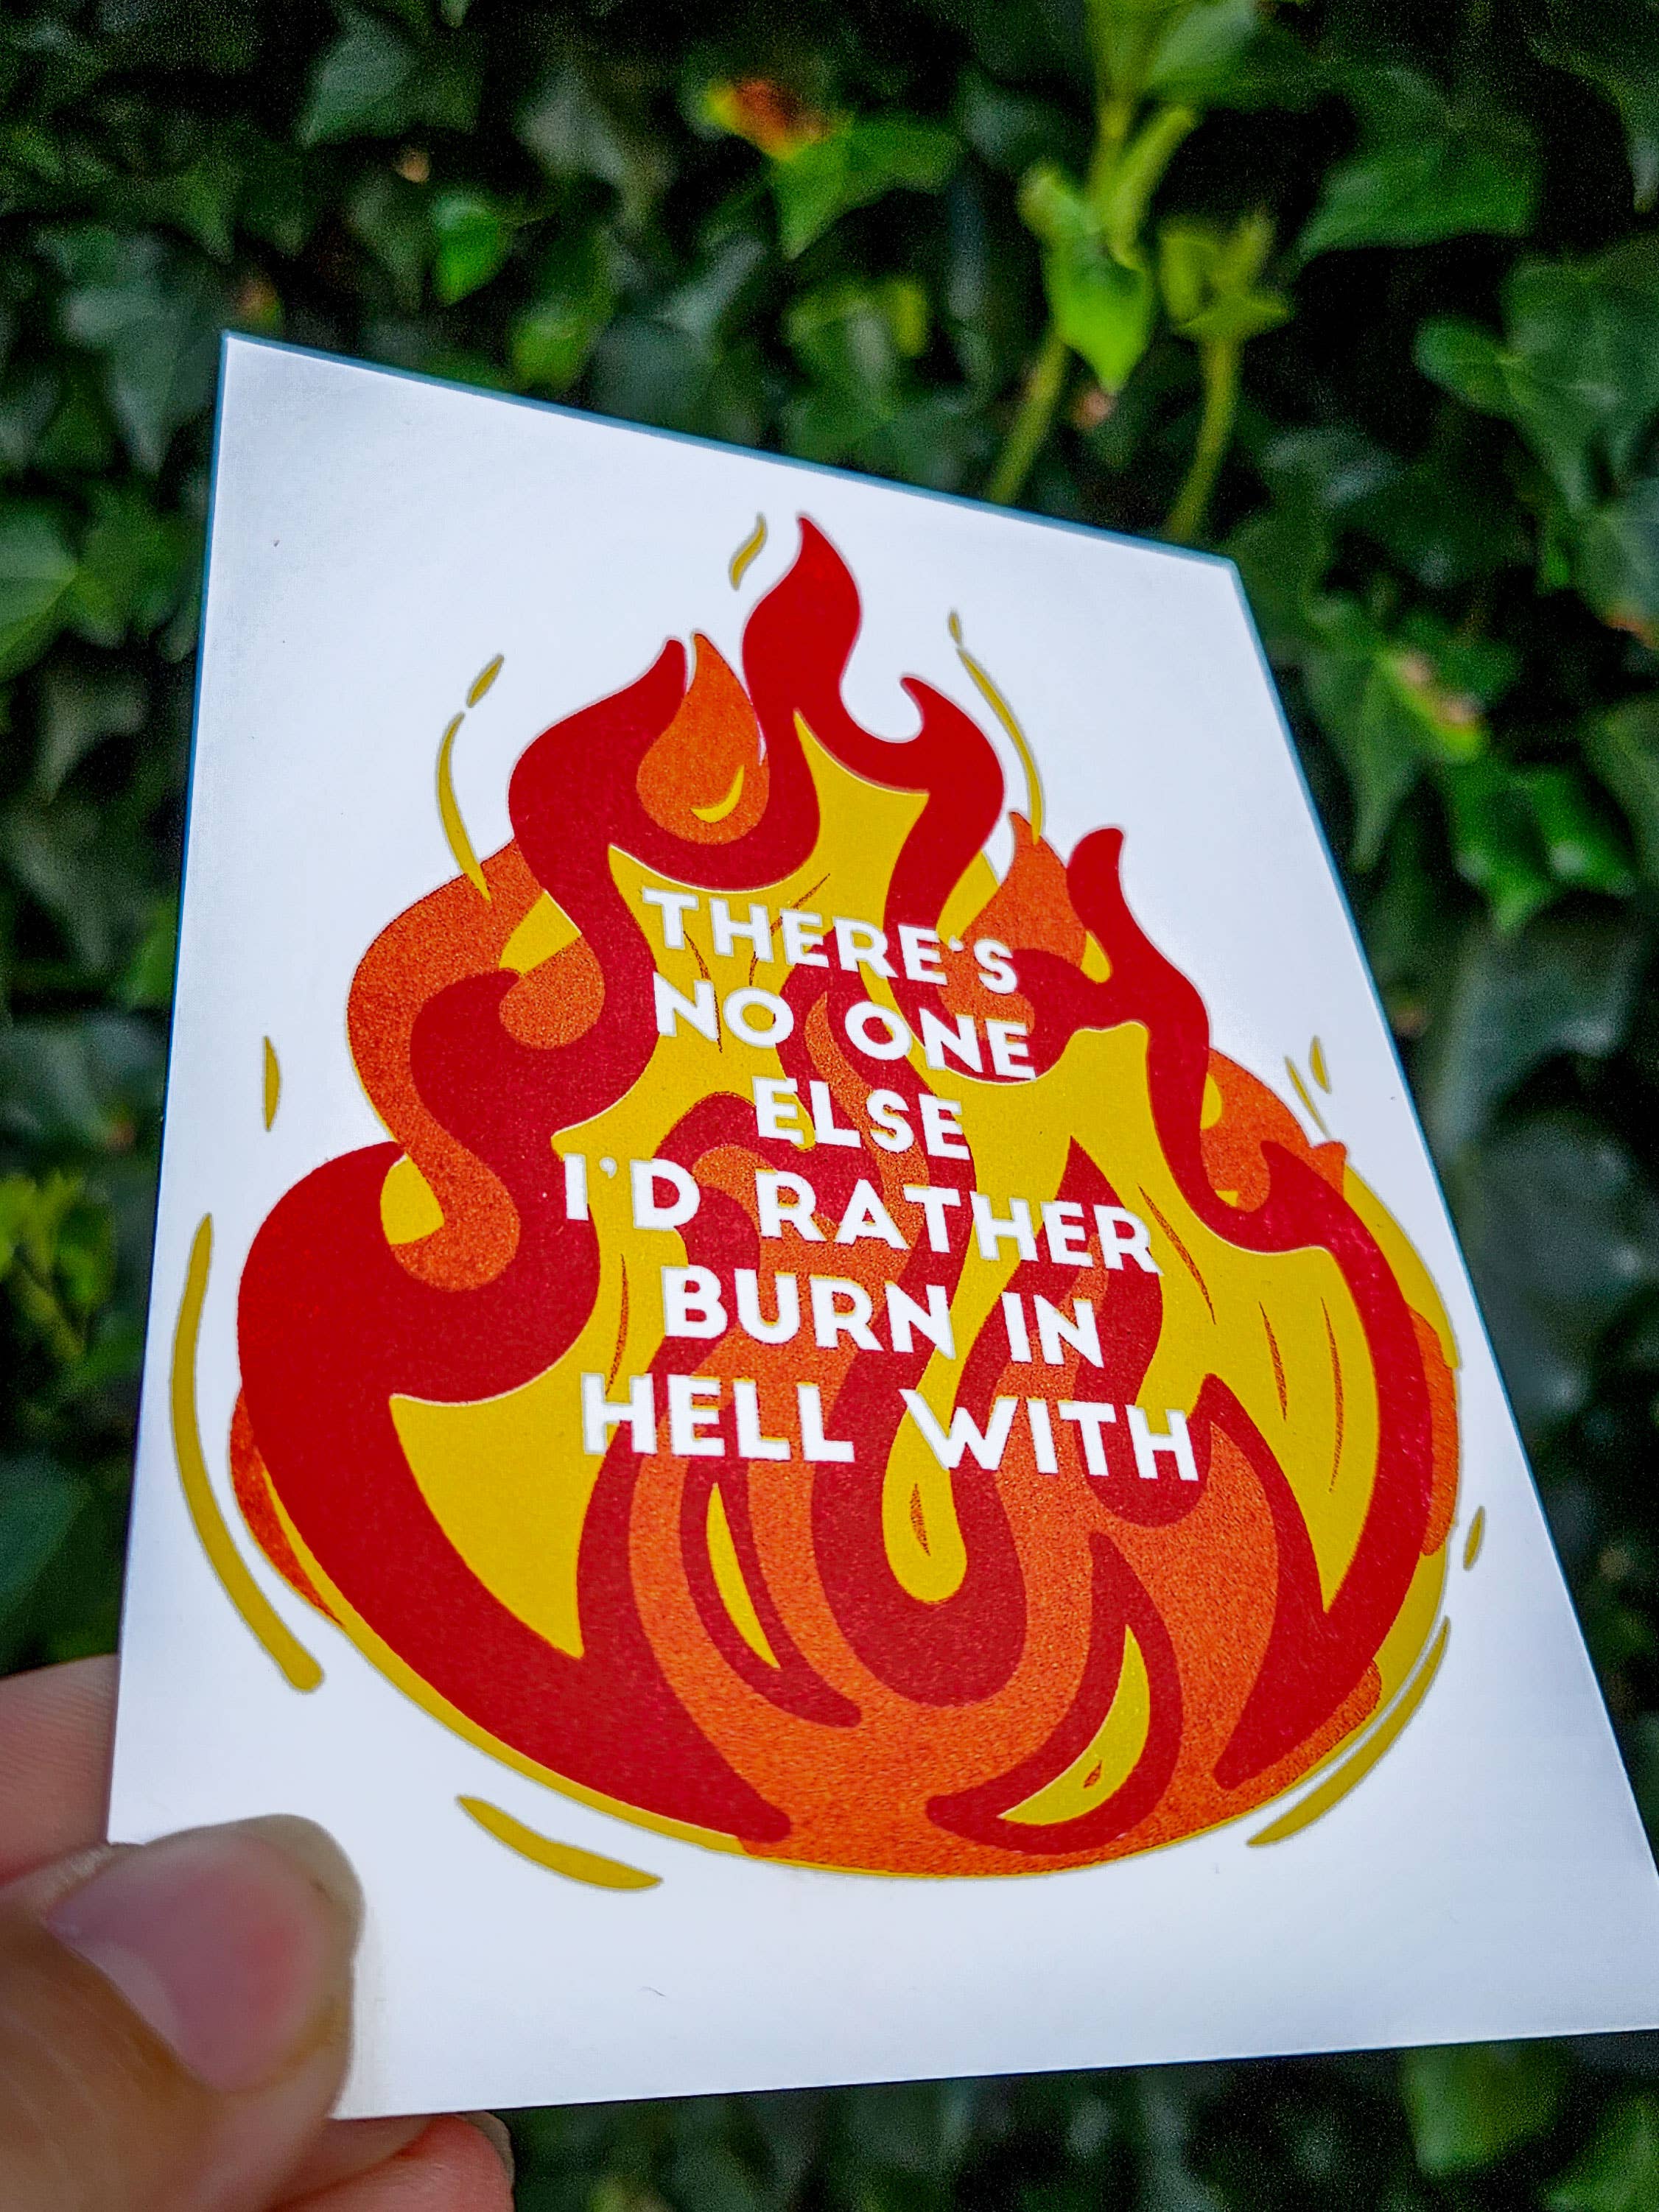 THERE'S
NO ONE
ELSE
I'D RATHER
BURN IN
HELL WITH